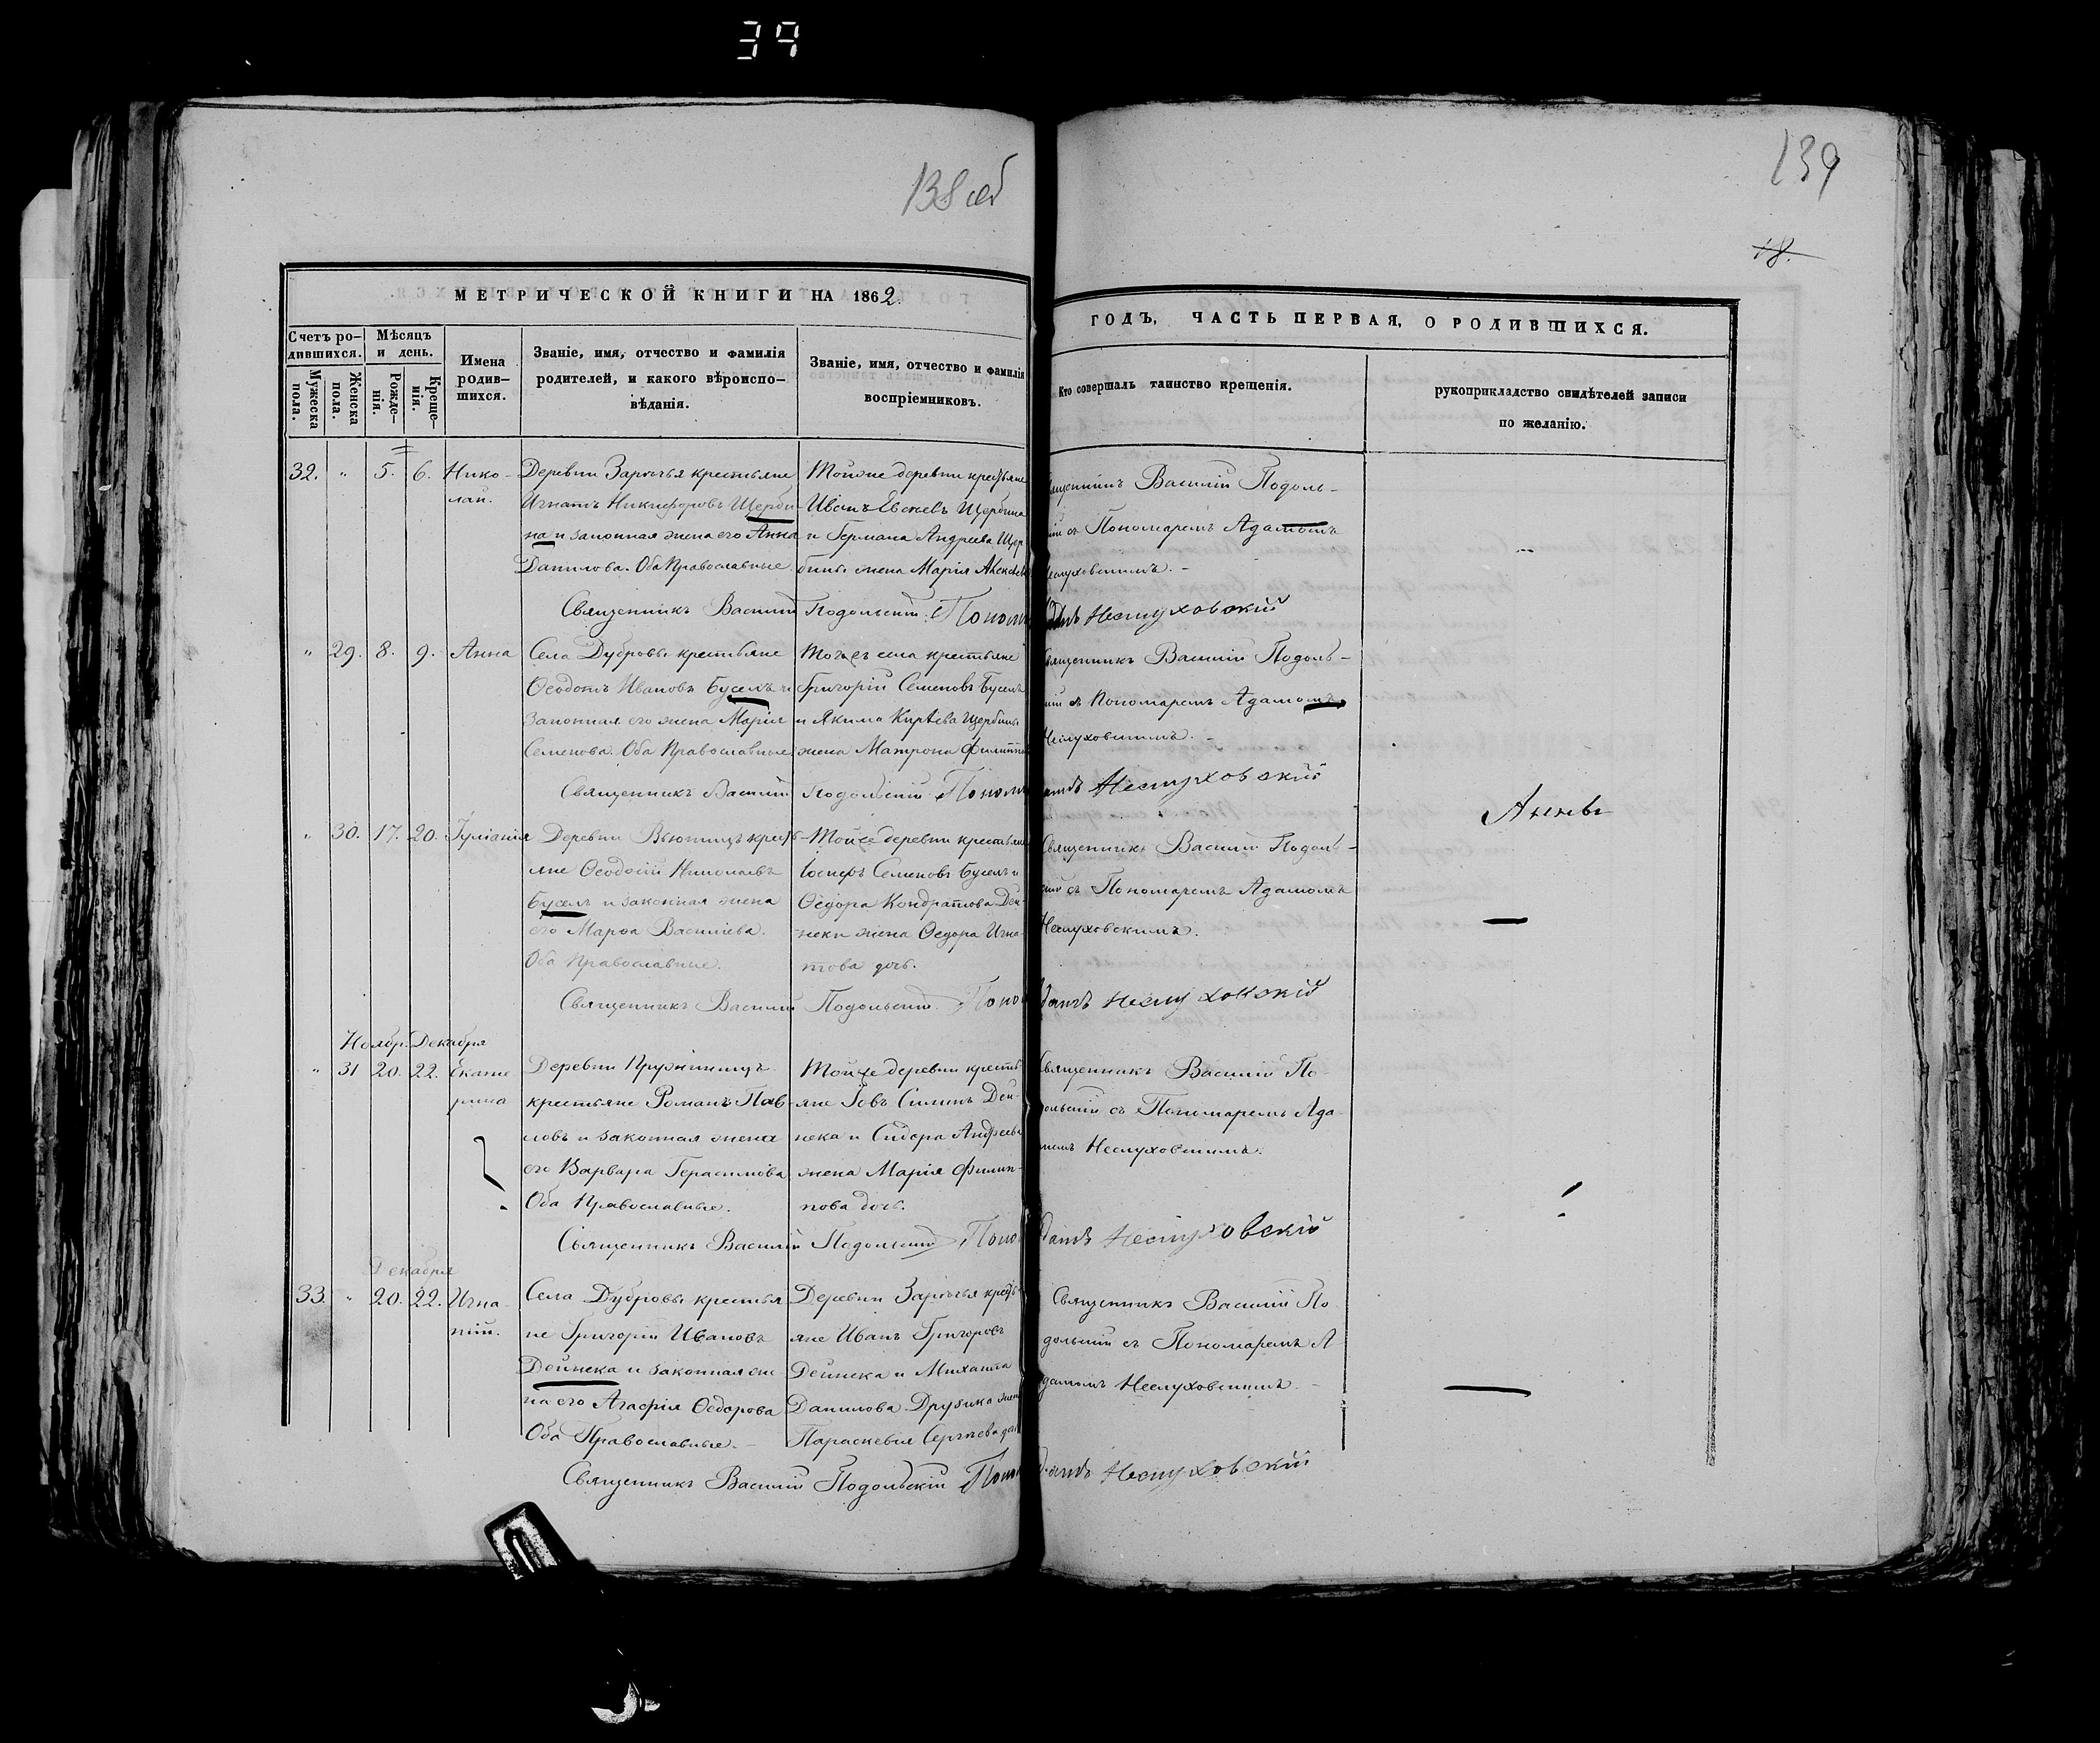 39
138 об
139
18.
МЕТРИЧЕСКОЙ КНИГИ НА 1862.
ГОДЪ, ЧАСТЬ ПЕРВАЯ, О РОДИВШИХСЯ.
Счетъ ро-
дившихся.
Мужеска
пола.
Женска
пола.
Мѣсяцъ
и день.
Рожде-
нія.
Креще-
нія.
Имена
родив-
шихся.
Званіе, имя, отчество и фамилія
родителей, и какого вѣроиспо-
вѣданія.
Званіе, имя, отчество и фамилія
воспріемниковъ.
Кто совершалъ таинство крещенія.
рукоприкладство свидѣтелей записи
по желанію.
32. " 5. 6. Нико-
лай.
Деревни Зарѣчья крестьяне
Игнатъ Никифоровъ Щерби
на и законная жена его Анна
Данилова. Оба Православные.
Тойже деревни крестьяне
Иванъ Щербина
и Германа Андреева Щер
бины жена Марія
Священникъ Василій Подоль-
съ Пономаремъ Адамомъ
Неслуховскимъ. -
Священникъ Василій Подольскій. Поном Адамъ Неслуховскій
" 29. 8. 9. Анна
Села Дубровы крестьяне
Ѳеодотъ Ивановъ Буселъ и
законная его жена Марія
Семенова. Оба Православные
Тогожъ села крестьяне
Григорій Семеновъ Буселъ
и Якима Щербины
жена Матрона
Священникъ Василій Подоль-
съ Пономаремъ Адамомъ
Неслуховскимъ. -
Священникъ Василій Подольскій Поном Неслуховскій
" 30. 17. 20. Іуліанія
Деревни крестъ-
яне Ѳеодосій Николаевъ
Буселъ и законная жена
его Марѳа Василіева.
Оба Православные.
Тойже деревни крестьяне
Іосифъ Семеновъ Буселъ и
Ѳедора Кондратова Дей-
неки жена Ѳедора Игна-
това дочь.
Аннѣ
Священникъ Василій Подоль-
съ Пономаремъ Адамомъ
Неслуховскимъ.
Священникъ Василій Подольскій Поно Неслуховскій
Ноябр. Декабря
" 31 20. 22. Екате
рина
Деревни
крестьяне Романъ Пав-
ловъ и законная жена
его Варвара Герасимова
Оба Православные.
Тойже деревни кресть-
яне Іовъ Силинъ Дей-
нека и Сидора Андреева
жена Марія Филип-
пова дочь.
Священникъ Василій По-
дольскій съ Пономаремъ Ада-
момъ Неслуховскимъ.
Священникъ Василій Подольскій Поно Неслуховскій
Декабря
33. " 20. 22. Игна-
тій.
Села Дубровы крестья
не Григорій Ивановъ
Дейнека и законная же
на его Агафія Ѳедорова
Оба Православные. -
Деревни Зарѣчья кресть-
яне Иванъ Григоровъ
Дейнека и Михаила
Данилова жена
Параскевія Сергѣева
Священникъ Василій По-
дольскій съ Пономаремъ А
дамомъ Неслуховскимъ. -
Священникъ Василій Подольскій Поно Неслуховскій